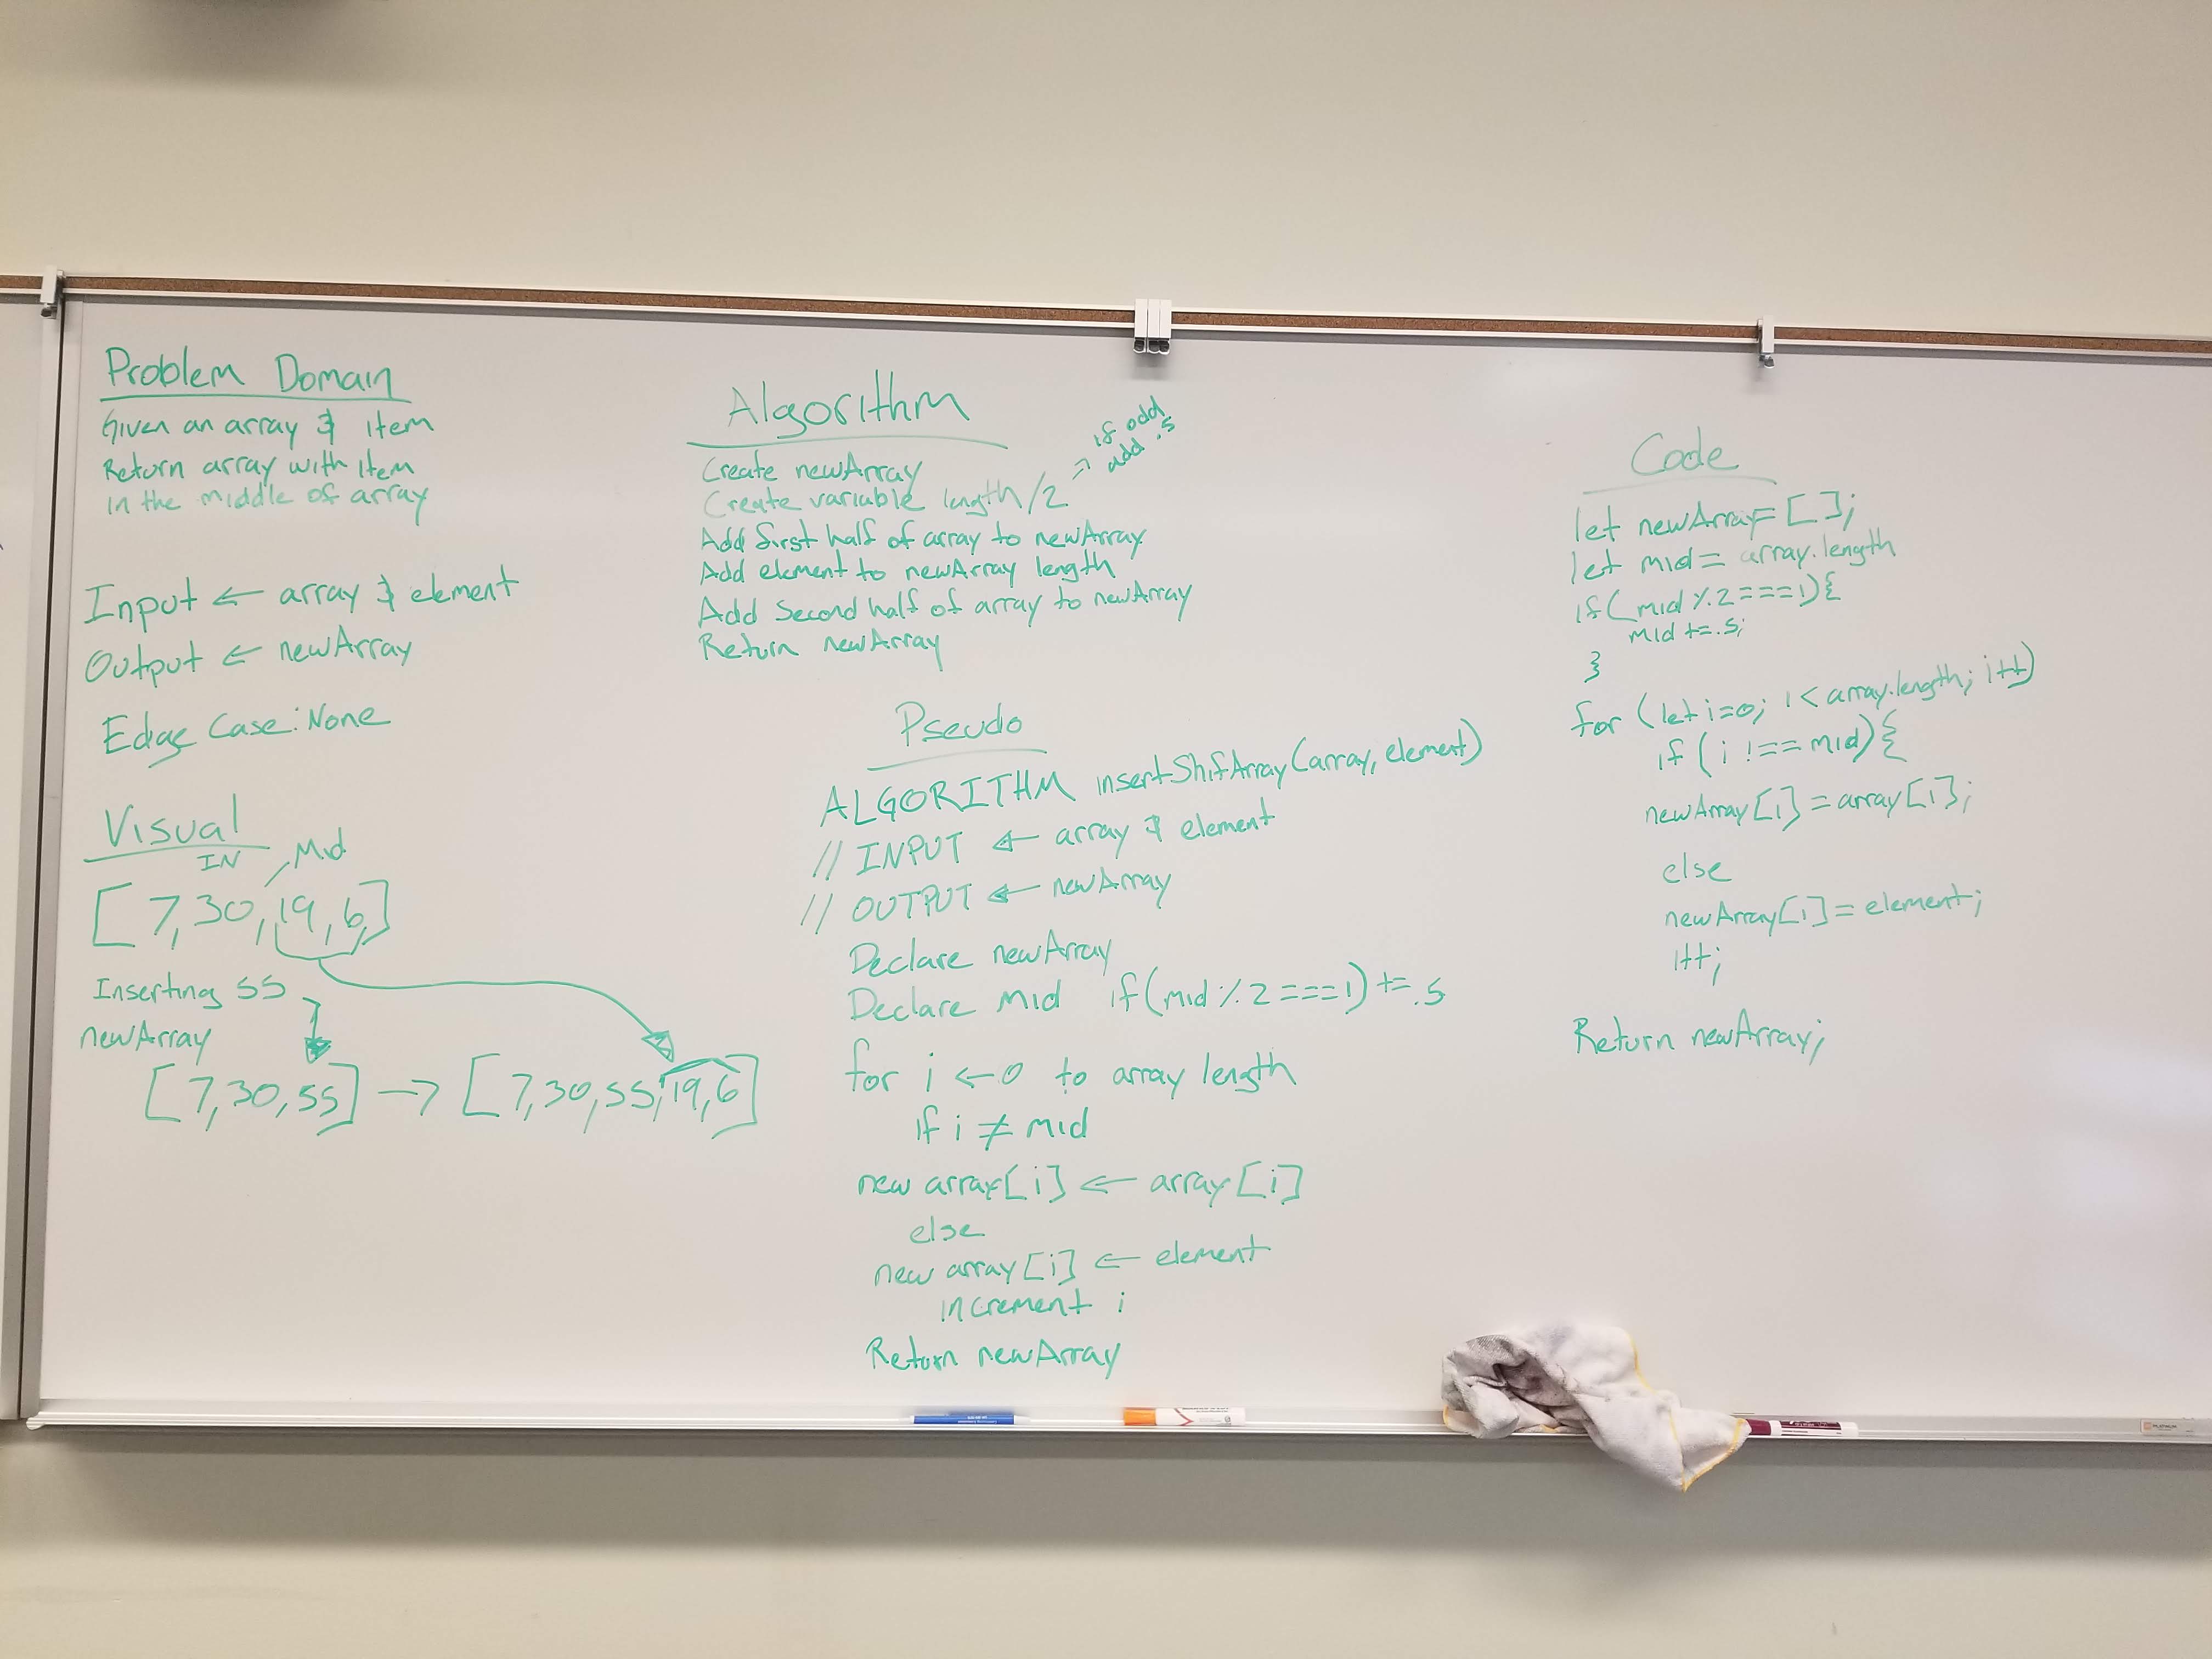 Problem Domain
Given an array & item
Return array with item
in the middle of array
Input ← array & element
Output ← newArray
Edge Case: None
Visual
IN
Mid
[7,30,19,6,]
Inserting 55
newArray
[7,30,55] → [7,30,55,19,6]
Algorithm
Create newArray
Create variable length/2 ⇒ if odd
add .5
Add first half of array to newArray
Add element to newArray length
Add Second half of array to newArray
Return newArray
Pseudo
ALGORITHM insertShifArray(array, element)
// INPUT ← array & element
// OUTPUT ← newArray
Declare newArray
Declare Mid if(mid % 2 === 1) += .5
for i ← 0 to array length
if i ≠ mid
new array[i] ← array[i]
else
new array[i] ← element
increment i
Return newArray
Code
let newArray = [];
let mid = array.length
if(mid % 2 === 1){
mid += .5;
}
for (let i=0; i < array.length; i++)
if (i !== mid){
newArray[i] = array[i];
else
newArray[i] = element;
i++;
Return newArray;